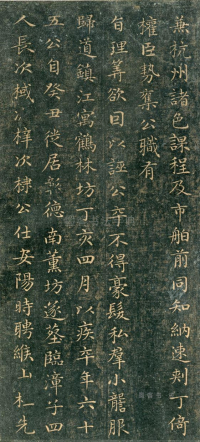 兼杭州諸色課程及市舶前同知納速剌丁倚
權臣勢棄公職有
自理筭欲因以誣公卒不得豪髮私羣小讋服
歸道鎮江寓鶴林坊丁亥四月以疾卒年六十
五公自癸丑徙居彰德南薰坊遂墓臨漳子四
人長次棫次梓次棣公仕安陽時聘緱山杜先